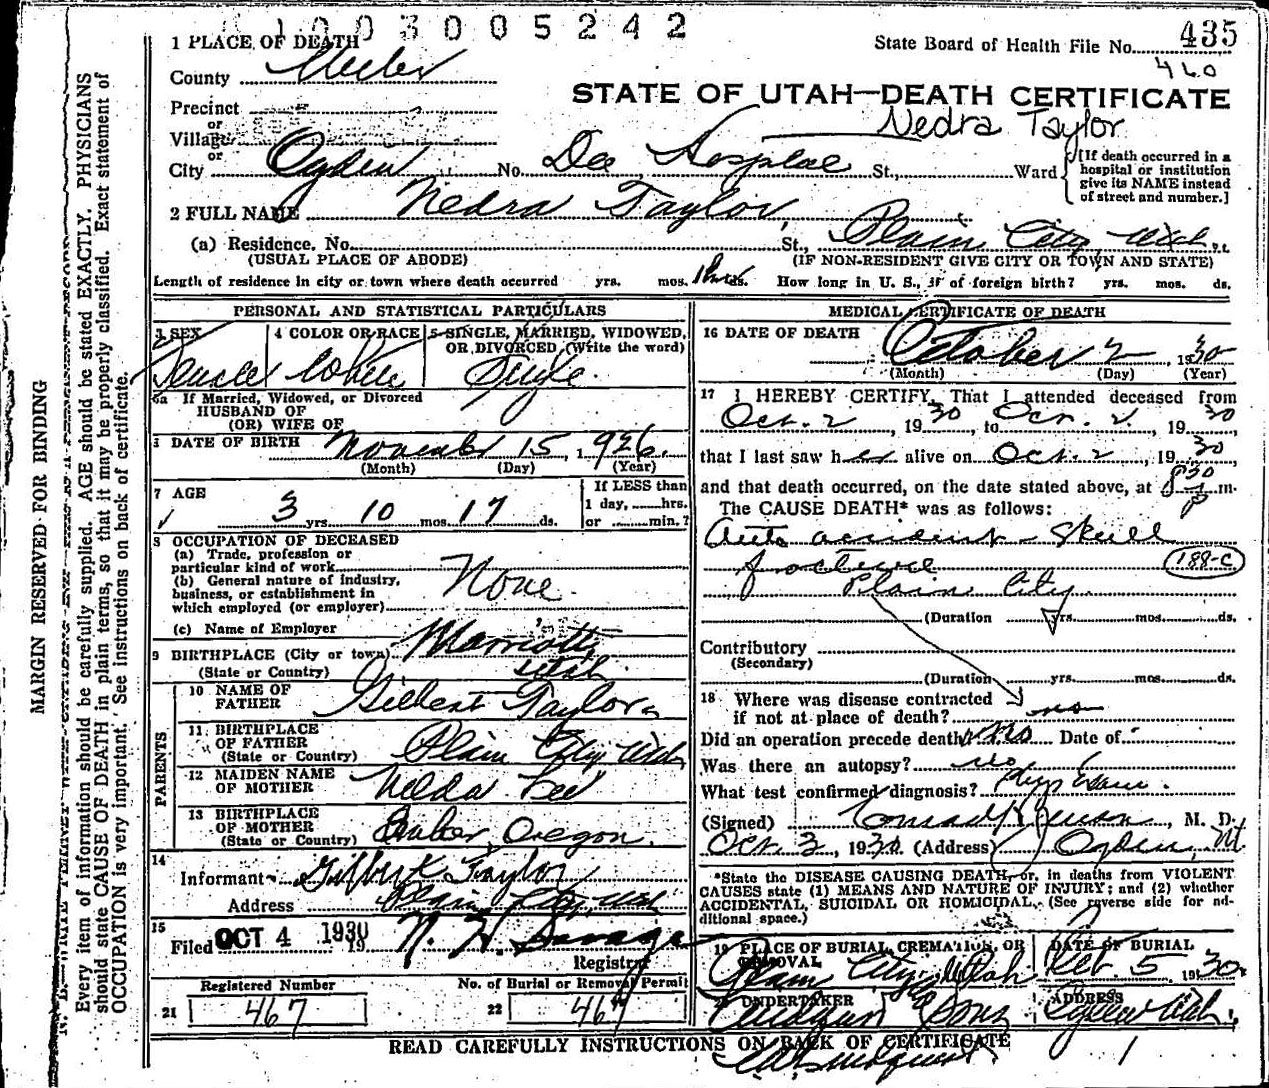 1003005242
435
State Board of Health File No.
460
1 PLACE OF DEATH
County Weber
STATE OF UTAH—DEATH CERTIFICATE
Precinct
or
Village
Nedra Taylor
or
City Ogden No. Dee Hospital St., Ward
[If death occurred in a
hospital or institution
give its NAME instead
of street and number.]
2 FULL NAME Nedra Taylor
(a) Residence. No. St., Plain City, Utah
(USUAL PLACE OF ABODE) (IF NON-RESIDENT GIVE CITY OR TOWN AND STATE)
Length of residence in city or town where death occurred yrs. mos. ds. How long in U. S., if of foreign birth? yrs. mos. ds.
PERSONAL AND STATISTICAL PARTICULARS
3 SEX Female
4 COLOR OR RACE White
5 SINGLE, MARRIED, WIDOWED,
OR DIVORCED (Write the word)
Single
5a If Married, Widowed, or Divorced
HUSBAND OF
(OR) WIFE OF
DATE OF BIRTH November 15, 1926.
(Month) (Day) (Year)
7 AGE
3 yrs 10 mos. 17 ds.
If LESS than
1 day, hrs.
or min.?
8 OCCUPATION OF DECEASED
(a) Trade, profession or
particular kind of work
(b) General nature of industry,
business, or establishment in
which employed (or employer)
None
(c) Name of Employer
9 BIRTHPLACE (City or town) Marriott
(State or Country) Utah
PARENTS
10 NAME OF
FATHER Gilbert Taylor
11 BIRTHPLACE
OF FATHER
(State or Country) Plain City Utah
12 MAIDEN NAME
OF MOTHER Nelda Lee
13 BIRTHPLACE
OF MOTHER
(State or Country) Oregon.
14
Informant Gilbert Taylor
Address Plain City, Utah
15
Filed OCT 4 1930 N. H. Savage
19
Registrar
Registered Number
21 467
No. of Burial or Removal Permit
22 467
MEDICAL CERTIFICATE OF DEATH
16 DATE OF DEATH
October 2, 1930
(Month) (Day) (Year)
17 I HEREBY CERTIFY, That I attended deceased from
Oct. 2, 1930, to Oct. 2, 1930,
that I last saw her alive on Oct. 2, 1930,
and that death occurred, on the date stated above, at 830 p m.
The CAUSE DEATH* was as follows:
Auto accident - Skull
fracture
188-C
Plain City
(Duration yrs. mos. ds.
Contributory
(Secondary)
(Duration yrs. mos. ds.
18 Where was disease contracted
if not at place of death? no
Did an operation precede death? no Date of
Was there an autopsy? no
What test confirmed diagnosis? Phys Exam.
(Signed) Conrad H Jenson, M. D.
Oct. 3, 1930 (Address) Ogden, Ut
*State the DISEASE CAUSING DEATH, or, in deaths from VIOLENT
CAUSES state (1) MEANS AND NATURE OF INJURY; and (2) whether
ACCIDENTAL, SUICIDAL OR HOMICIDAL. (See reverse side for ad-
ditional space.)
19 PLACE OF BURIAL, CREMATION, OR
REMOVAL
Plain City, Utah
DATE OF BURIAL
Oct. 5 1930.
UNDERTAKER
Lindquist & Sons
ADDRESS
Ogden Utah.
READ CAREFULLY INSTRUCTIONS ON BACK OF CERTIFICATE
MARGIN RESERVED FOR BINDING
Every item of information should be carefully supplied. AGE should be stated EXACTLY. PHYSICIANS
should state CAUSE OF DEATH in plain terms, so that it may be properly classified. Exact statement of
OCCUPATION is very important. See instructions on back of certificate.